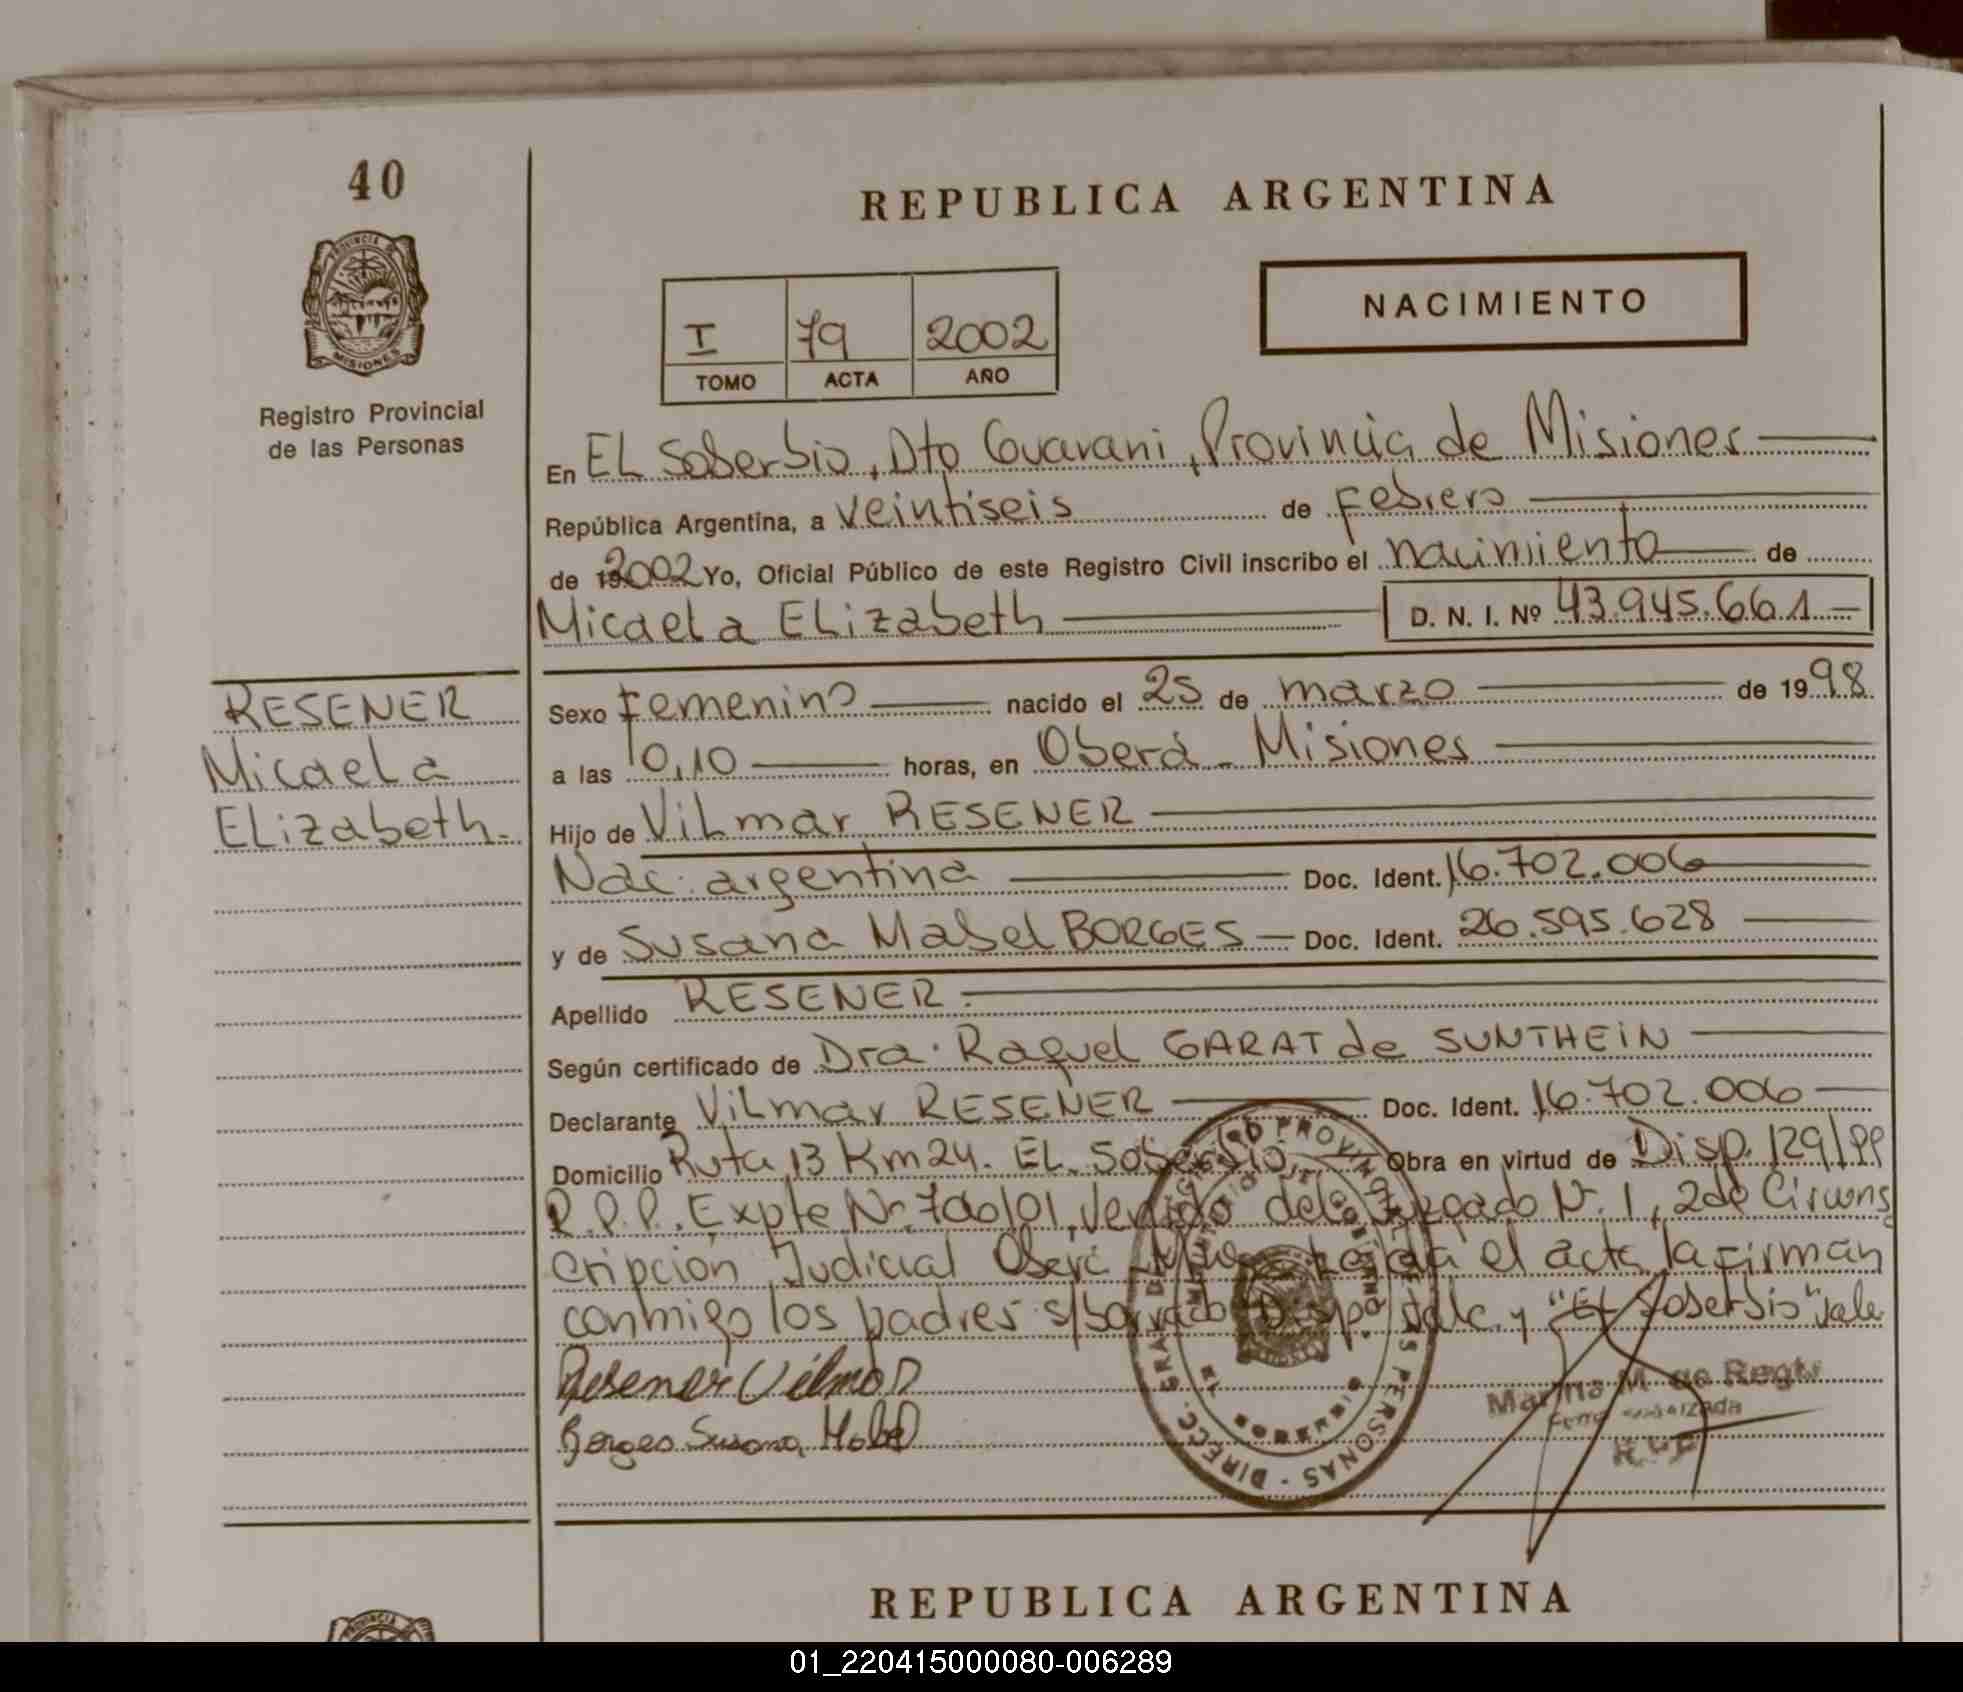 40
PROVINCIA DE
MISIONES
Registro Provincial
de las Personas
REPUBLICA ARGENTINA
NACIMIENTO
I 79 2002
TOMO ACTA AÑO
En EL Soberbio, Dto Guarani, Provincia de Misiones
República Argentina, a veintiseis de Febrero
de 2002 Yo, Oficial Público de este Registro Civil inscribo el nacimiento de
Micaela Elizabeth D. N. I. Nº 43.945.661
RESENER
Micaela
Elizabeth.
Sexo Femenino nacido el 25 de marzo de 1998
a las 10,10 horas, en Oberá - Misiones
Hijo de Vilmar RESENER
Nac. argentina Doc. Ident. 16.702.006
y de Susana Mabel BORGES Doc. Ident. 26.595.628
Apellido RESENER.
Según certificado de Dra. Raquel GARAT de SUNTHEIN
Declarante Vilmar RESENER Doc. Ident. 16.702.006
Domicilio Ruta 13 Km 24. EL Soberbio Obra en virtud de Disp. 129/99
R.P.P. Expte Nº 700/01, venido del Juzgado N. 1, 2da Circuns
cripción Judicial Oberá el acta la firman
conmigo los padres s/borrado Disp. vale y "EL Soberbio" vale
Resener Vilmar
Borges Susana Mabel
DIRECC. GRAL. DEL REGISTRO PROVINCIAL DE LAS PERSONAS
MINISTERIO DE GOBIERNO
EL SOBERBIO
Marina M. de
REPUBLICA ARGENTINA
PROVINCIA
01_220415000080-006289